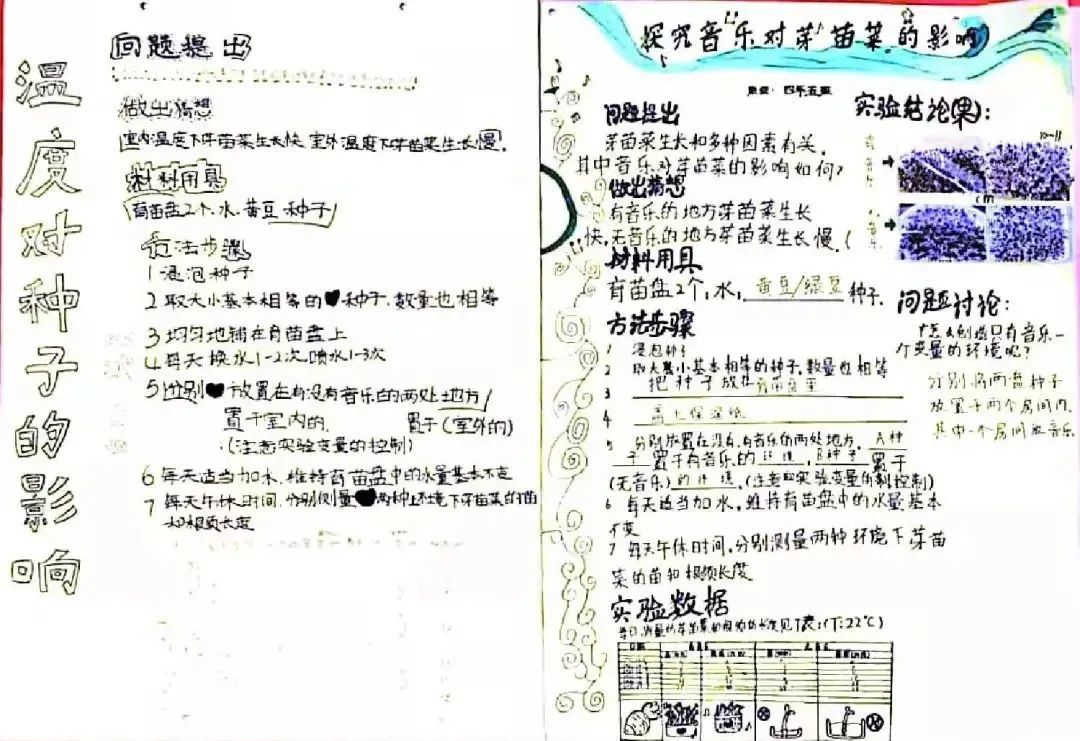 温度对种子的影响
问题提出
做出猜想
室内温度下芽苗菜生长快,室外温度下芽苗菜生长慢。
材料用具
育苗盘2个、水、黄豆种子
方法步骤
1 浸泡种子
2 取大小基本相等的种子,数量也相等
3 均匀地铺在育苗盘上
4 每天换水1-2次,喷水1-3次
5 分别放置在有没有音乐的两处地方
置于室内的. 置于(室外的)
.(注意实验变量的控制)
6 每天适当加水,维持育苗盘中的水量基本不变
7 每天午休时间,分别测量两种环境下芽苗菜的苗
和根须长度
探究音乐对芽苗菜的影响
问题提出
芽苗菜生长和多种因素有关,
其中音乐对芽苗菜的影响如何?
做出猜想
有音乐的地方芽苗菜生长
快,无音乐的地方芽苗菜生长慢.(
材料用具
育苗盘2个,水,黄豆/绿豆种子.
方法步骤
1 浸泡种子
2 取大小基本相等的种子,数量也相等
3 把种子放在育苗盘里
4 盖上保湿纸
5 分别放置在没有,有音乐的两处地方,A种
子置于有音乐的环境,B种子置于
(无音乐)的环境.(注意实验变量的控制)
6 每天适当加水,维持育苗盘中的水量基本
不变
7 每天午休时间,分别测量两种环境下芽苗
菜的苗和根须长度
实验数据
实验结论(果):
10-11
cm
问题讨论:
怎么创造只有音乐一
个变量的环境呢?
分别将两盘种子
放置于两个房间内,
其中一个房间放音乐